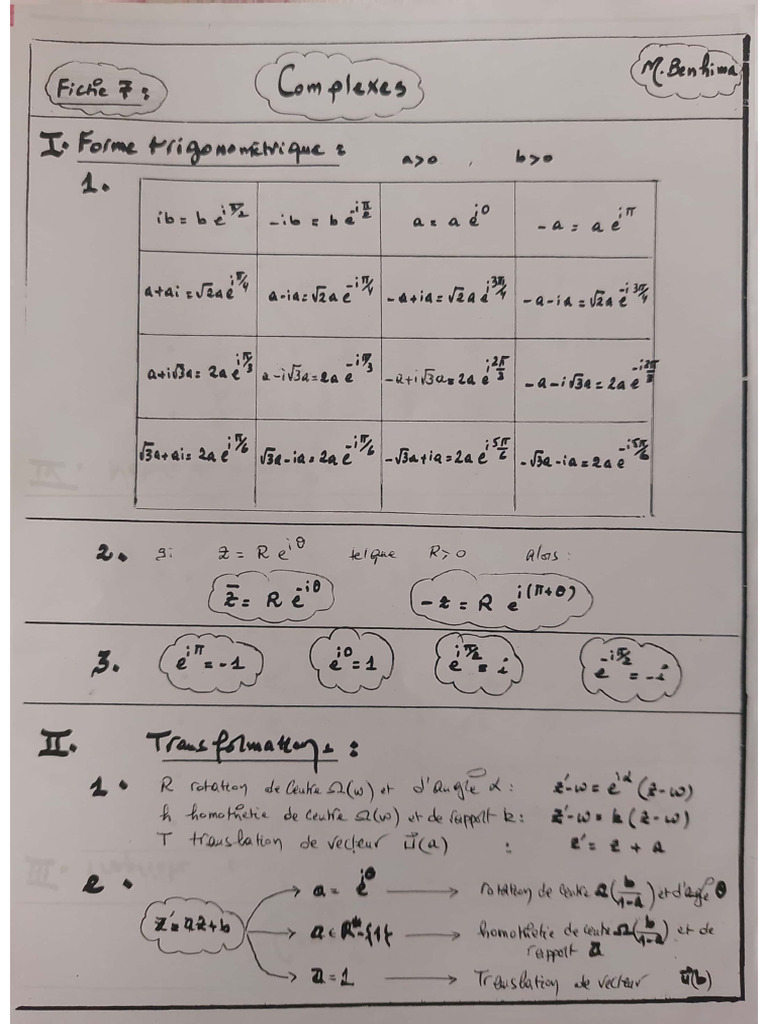 Fiche 7 : Complexes M. Benhima
I. Forme trigonométrique : a>0 , b>0
1.
ib = b e^{iπ/2} -ib = b e^{-iπ/2} a = a e^{i0} -a = a e^{iπ}
a+ai = √2a e^{iπ/4} a-ia = √2a e^{-iπ/4} -a+ia = √2a e^{i3π/4} -a-ia = √2a e^{-i3π/4}
a+i√3a = 2a e^{iπ/3} a-i√3a = 2a e^{-iπ/3} -a+i√3a = 2a e^{i2π/3} -a-i√3a = 2a e^{-i2π/3}
√3a+ai = 2a e^{iπ/6} √3a-ia = 2a e^{-iπ/6} -√3a+ia = 2a e^{i5π/6} -√3a-ia = 2a e^{-i5π/6}
2. si z = R e^{iθ} tel que R>0 alors :
z̄ = R e^{-iθ} -z = R e^{i(π+θ)}
3. e^{iπ} = -1 e^{i0} = 1 e^{iπ/2} = i e^{-iπ/2} = -i
II. Transformations :
1. R rotation de centre Ω(w) et d'angle α : z'-w = e^{iα}(z-w)
h homothétie de centre Ω(w) et de rapport k : z'-w = k(z-w)
T translation de vecteur u⃗(a) : z' = z + a
2. z' = az+b
→ a = e^{iθ} → rotation de centre Ω(b/1-a) et d'angle θ
→ a ∈ R*-{1} → homothétie de centre Ω(b/1-a) et de
rapport a
→ a = 1 → Translation de vecteur u⃗(b)